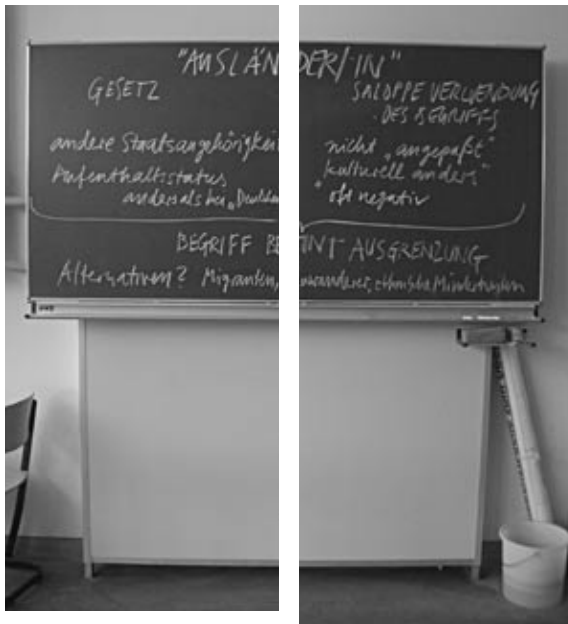 "AUSLÄNDER/IN"
GESETZ
andere Staatsangehörigkei
Aufenthaltsstatus
anders als bei
SALOPPE VERWENDUNG
DES BEGRIFFS
nicht „angepaßt"
kulturell anders"
oft negativ
BEGRIFF AUSGRENZUNG
Alternativen? Migranten, wanderer, ethnische Minderheiten